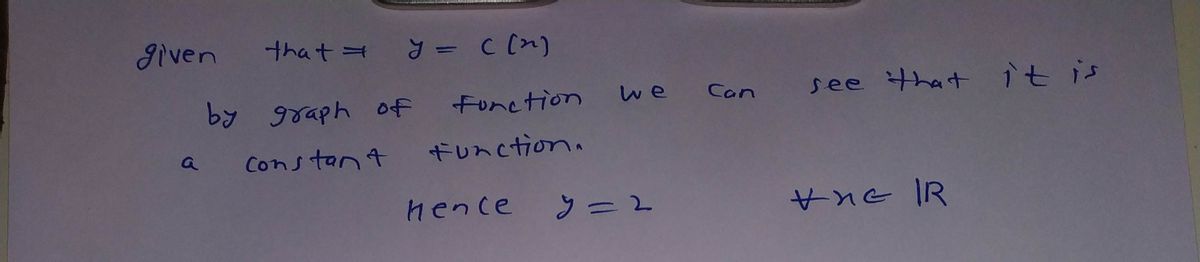 given that ⇒ y = c(x)
by graph of function we can see that it is
a constant function.
Hence y = 2 ∀ x ∈ ℝ